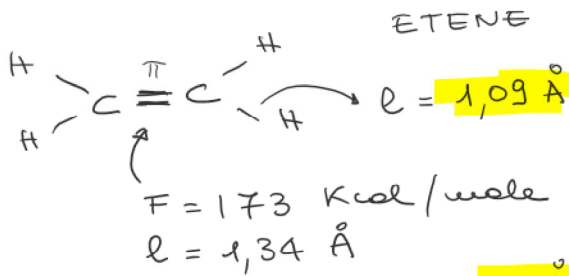 ETENE
H π H
C = C
H H
l = 1,09 Å
F = 173 Kcal/mole
l = 1,34 Å